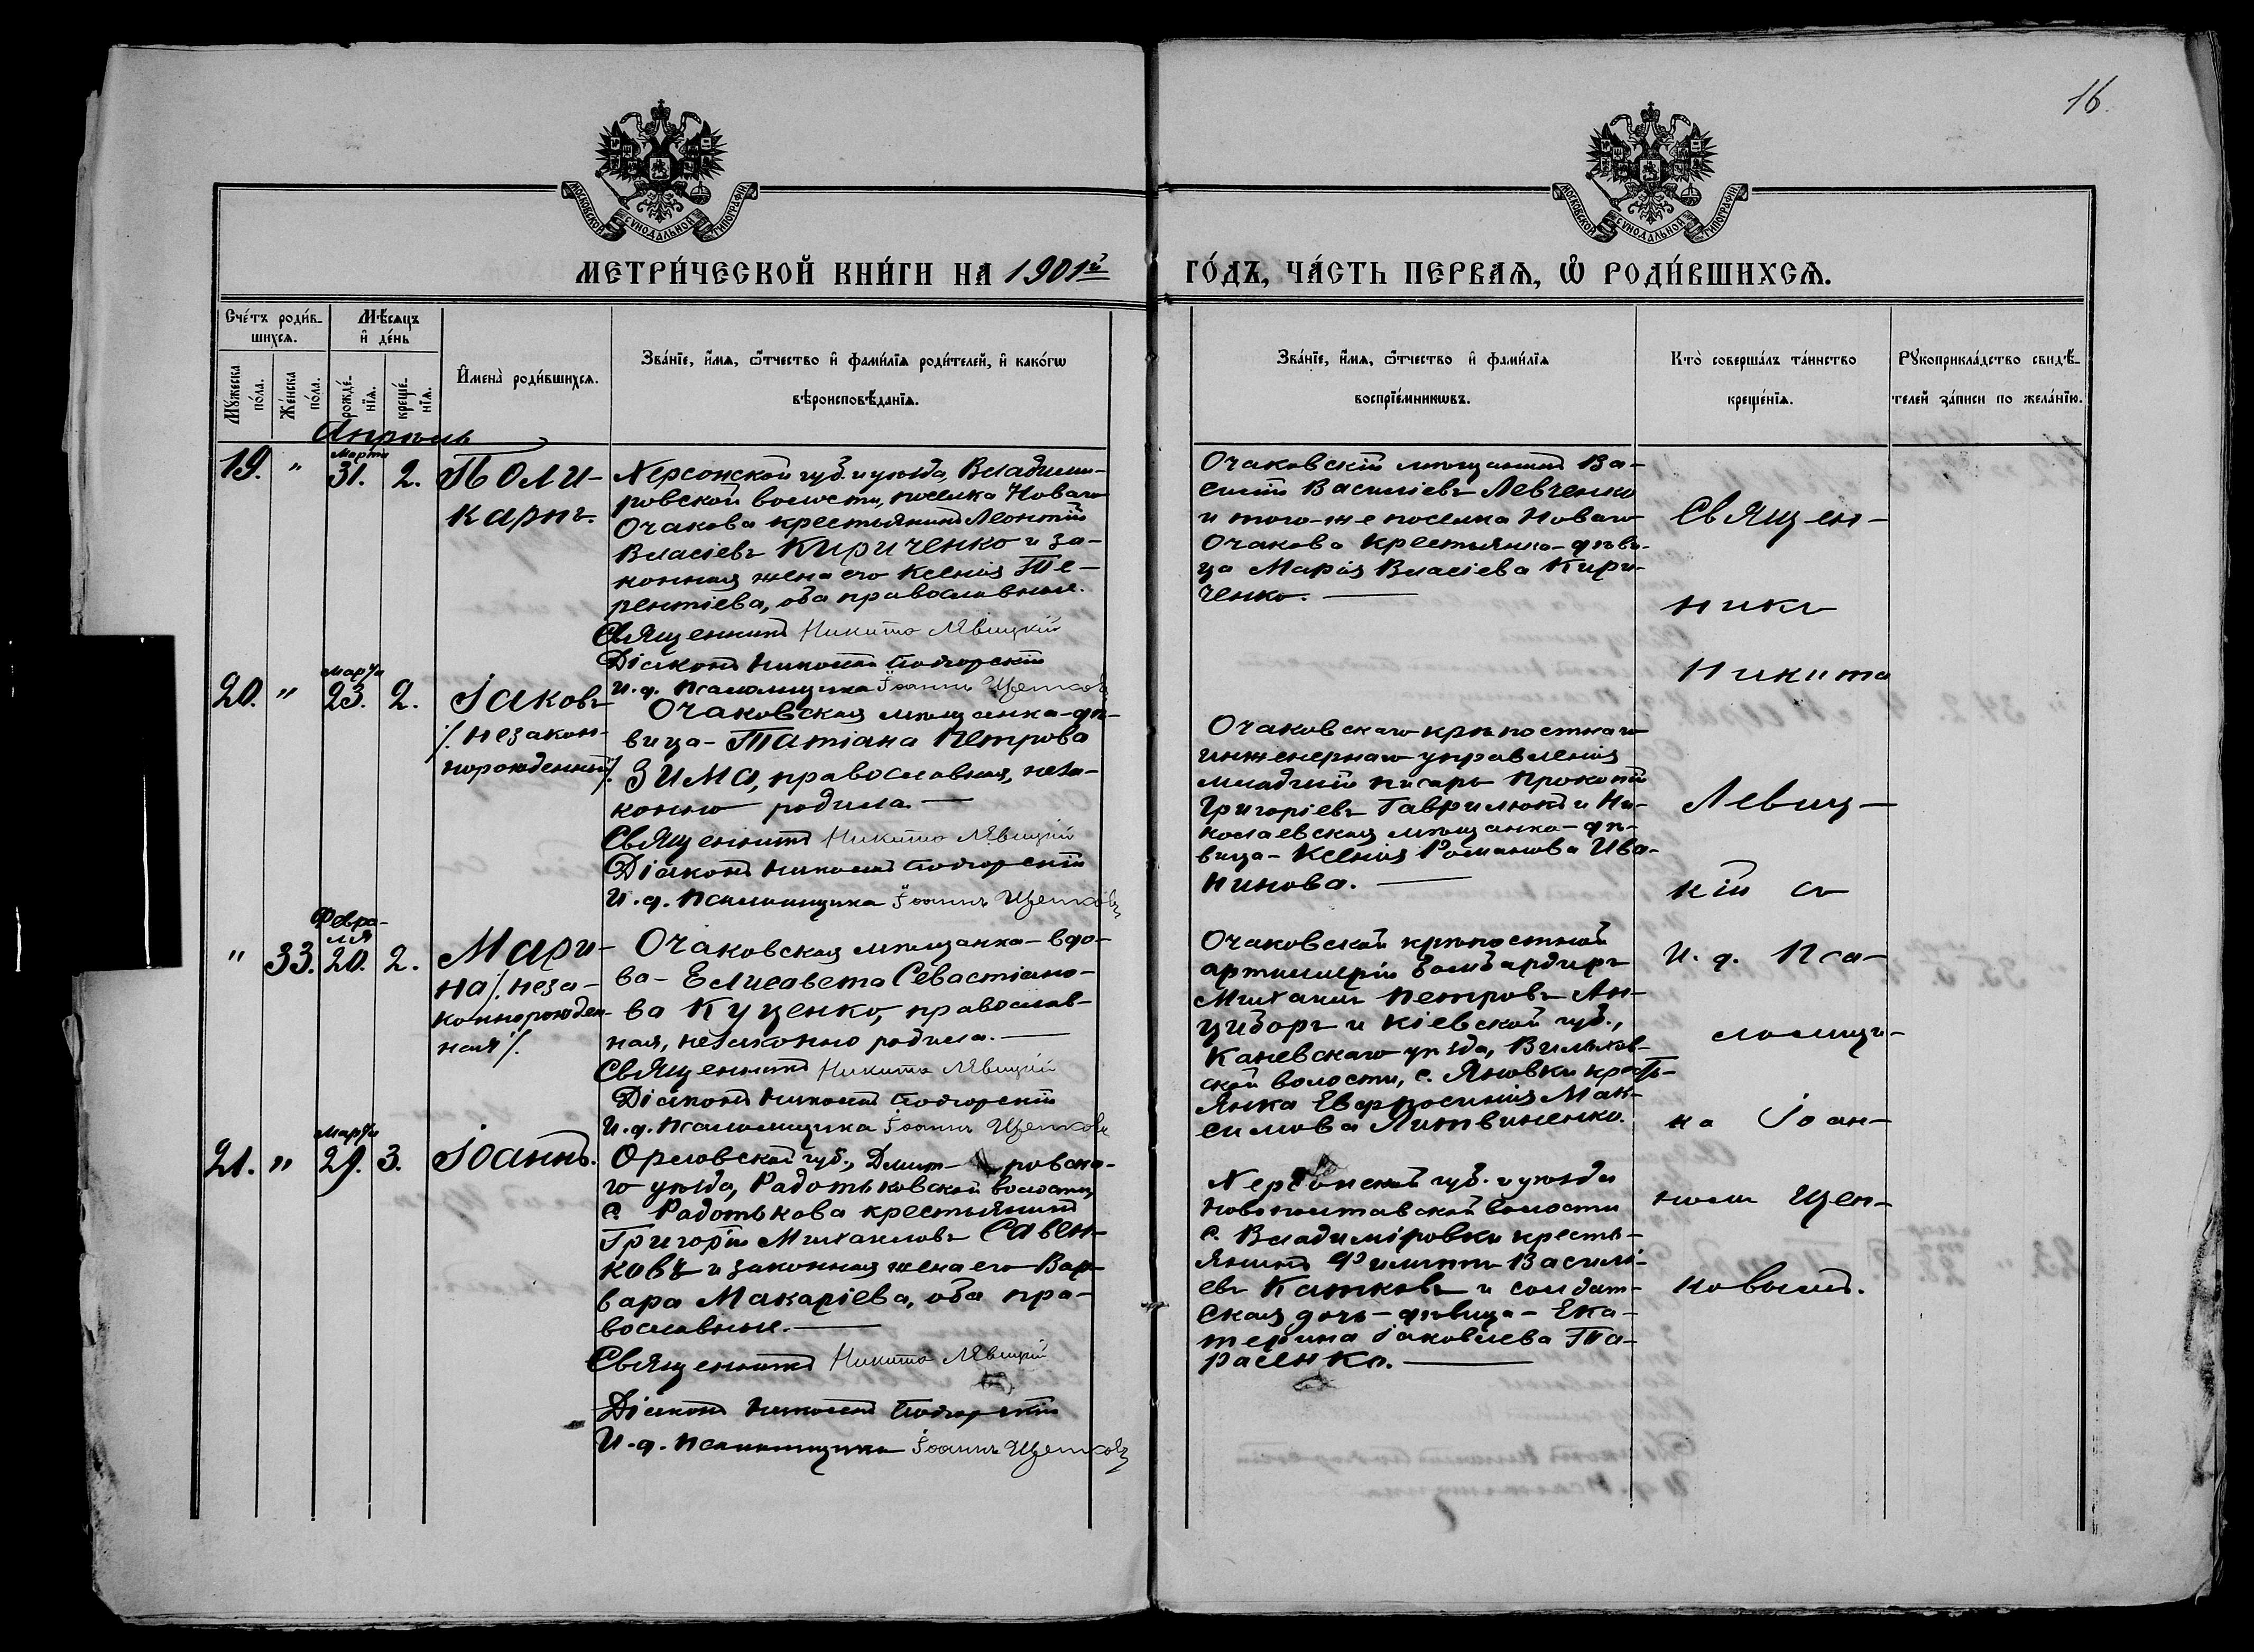 16.
МОСКОВСКОЙ СѴНОДАЛЬНОЙ ТИПОГРАФІИ
МОСКОВСКОЙ СѴНОДАЛЬНОЙ ТИПОГРАФІИ
МЕТРИ́ЧЕСКОЙ КНИ́ГИ НА 1901й
ГО́ДЪ, ЧА́СТЬ ПЕРВАѦ, Ѡ҆ РОДИ́ВШИХСѦ.
Сче́тъ роди́в-
шихсѧ.
Мѣ́сѧцъ
и҆ де́нь
Мꙋ́жеска
по́ла.
Же́нска
по́ла.
рожде́-
нїѧ.
креще́-
нїѧ.
И҆мена̀ роди́вшихсѧ.
Зва́нїе, и҆́мѧ, ѻ҆́тчество и҆ фами́лїѧ роди́телей, и҆ како́гѡ
вѣроисповѣ́данїѧ.
Зва́нїе, и҆́мѧ, ѻ҆́тчество и҆ фами́лїѧ
воспрїе́мникѡвъ.
Кто̀ соверша́лъ та́инство
креще́нїѧ.
Рꙋкоприкла́дство свидѣ́-
телей за́писи по жела́нїю.
Апрѣль
19. " Марта 31. 2.
Поли-
карпъ.
Херсонской губ. и уѣзда, Владими-
ровской волости, поселка Новаго
Очакова крестьянинъ Леонтій
Власіевъ Кириченко и за-
конная жена его Ксенія Те-
рентіева, оба православные.
Священникъ Никита Лѣвицкій
Діаконъ Николай Подгорскій
И. д. псаломщика Іоаннъ Щетковъ
Очаковскій мѣщанинъ Ва-
силій Василіевъ Левченко
и того-же поселка Новаго
Очакова крестьянка-дѣви-
ца Марія Власіева Кири-
ченко.
20. " Марта 23. 2.
Іаковъ
/. незакон-
норожденный /.
Очаковская мѣщанка-дѣ-
вица-Татіана Петрова
Зима, православная, неза-
конно родила.
Священникъ Никита Лѣвицкій
Діаконъ Николай Подгорскій
И. д. псаломщика Іоаннъ Щетковъ
Очаковскаго крѣпостнаго
инженернаго управленія
младшій писарь Прокопій
Григоріевъ Гаврилюкъ и Ни-
колаевская мѣщанка-дѣ-
вица-Ксенія Романова Ива-
нинова.
" 33. Февра-
ля
20. 2.
Мари-
на /. неза-
коннорожден-
ная /.
Очаковская мѣщанка-вдо-
ва-Елисавета Севастіано-
ва Куценко, православ-
ная, незаконно родила.
Священникъ Никита Лѣвицкій
Діаконъ Николай Подгорскій
И. д. псаломщика Іоаннъ Щетковъ
Очаковской крѣпостной
артиллеріи бомбардиръ
Михаилъ Петровъ Ан-
циборъ и Кіевской губ.,
Каневскаго уѣзда,
ской волости, с. Яновки крест-
янка Евфросинія Мак-
симова Литвиненко.
21. " Марта 29. 3.
Іоаннъ.
Орловской губ., Дмит-ровска-
го уѣзда, Радотьковской волости,
с. Радотькова крестьянинъ
Григорій Михаиловъ Савен-
ковъ и законная жена его Вар-
вара Макаріева, оба пра-
вославные.
Священникъ Никита Лѣвицкій
Діаконъ Николай Подгорскій
И. д. псаломщика Іоаннъ Щетковъ
Херсонской губ. и уѣзда
Новополтавской волости
с. Владиміровки кресть-
янинъ Филиппъ Василі-
евъ Катковъ и солдат-
ская дочь-дѣвица-Ека-
терина Іаковлева Та-
расенко.
Священ-
никъ
Никита
Левиц-
кій съ
И. д. Пса-
ломщи-
ка Іоан-
номъ Щет-
ковымъ.